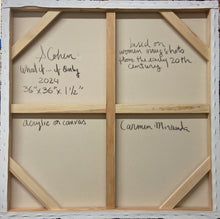 S Cohen
What if... if Only
2024
36"x36"x 1½"
based on
women mug shots
from the early 20th
century
acrylic on canvas
Carmen Miranda